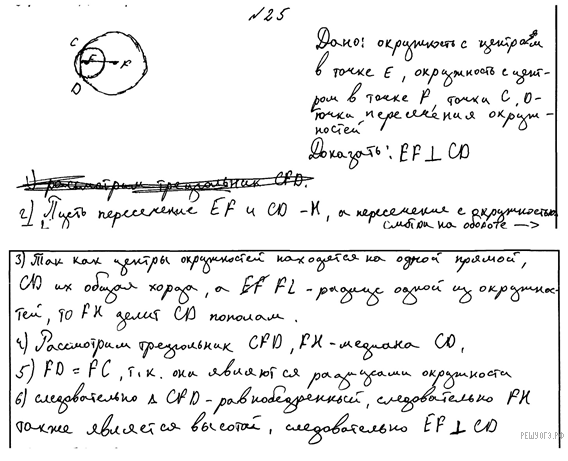 № 25
C
E
F
D
Дано: окружность с центром
в точке E, окружность с цент-
ром в точке F, точки C, D-
точки пересечения окруж-
ностей
Доказать: EF ⊥ CD
1) рассмотрим треугольник CFD.
2) Пусть пересечение EF и CD - H, а пересечение с окружностью
смотри на обороте →
3) Так как центры окружностей находятся на одной прямой,
CD их общая хорда, а EF FL - радиус одной из окружнос-
тей, то FH делит CD пополам.
4) Рассмотрим треугольник CFD, FH - медиана CD,
5) FD = FC, т.к. она являются радиусами окружности
6) следовательно Δ CFD - равнобедренный, следовательно FH
также является высотой, следовательно EF ⊥ CD
РЕШУОГЭ.РФ